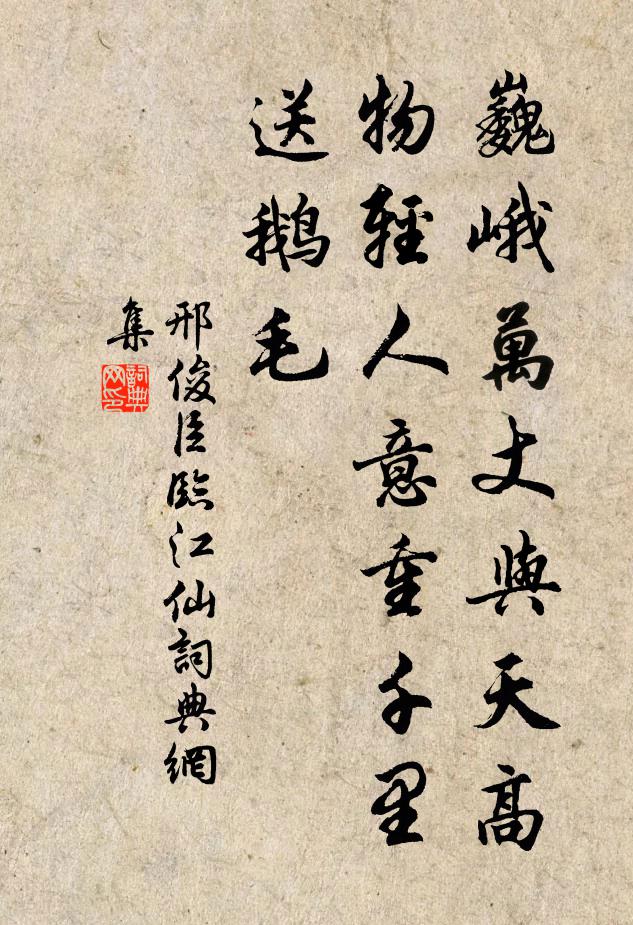 巍峨萬丈與天高
物輕人意重千里
送鹅毛
邢俊臣臨江仙詞典網
集
詞典網印